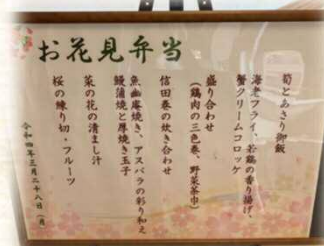 お花見弁当
筍とあさり御飯
海老フライ、若鶏の香り揚げ、
蟹クリームコロッケ
盛り合わせ
(鶏肉の三色巻、野菜茶巾)
信田巻の炊き合わせ
魚幽庵焼き、アスパラの彩り和え
鰻蒲焼と厚焼き玉子
菜の花の清まし汁
桜の練り切り・フルーツ
令和四年三月二十八日(月)